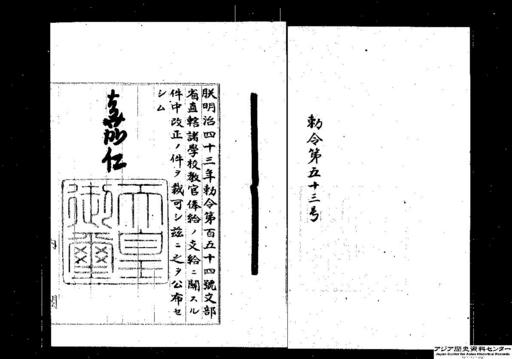 勅令第五十三号
朕明治四十三年勅令第百五十四號文部
省直轄諸學校教官俸給ノ支給ニ關スル
件中改正ノ件ヲ裁可シ茲ニ之ヲ公布セ
シム
嘉仁
天皇
御璽
内閣
アジア歴史資料センター
Japan Center for Asian Historical Records